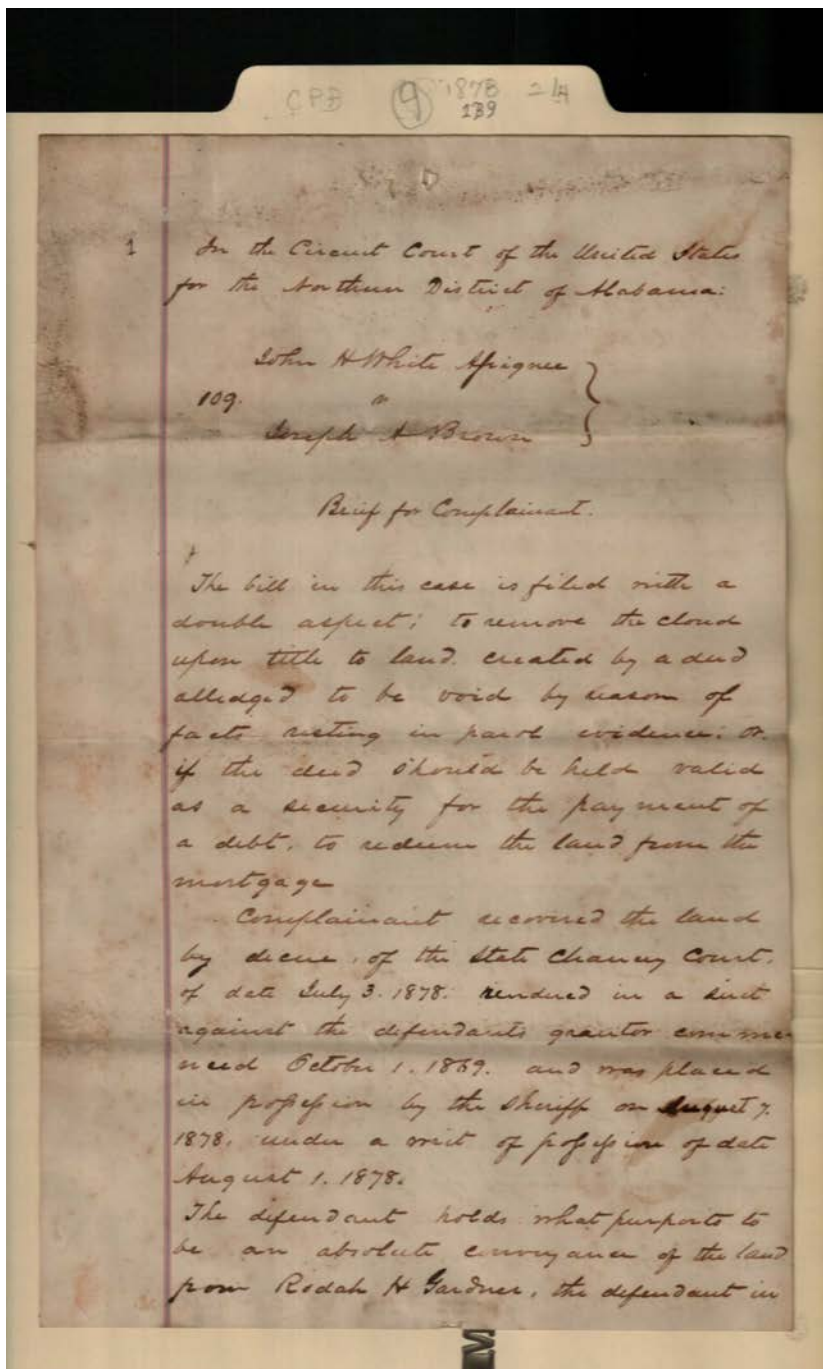 CPB 9 1878 2/4
239
1 In the Circuit Court of the United States
for the Northern District of Alabama:
John H White Assignee
109. vs
Joseph A Brown
Brief for Complainant.
The bill in this case is filed with a
double aspect; to remove the cloud
upon title to land created by a deed
alledged to be void by reason of
facts resting in parol evidence; or.
if the deed should be held valid
as a security for the payment of
a debt, to redeem the land from the
mortgage
Complainant recovered the land
by decree, of the State Chancery Court.
of date July 3. 1878. rendered in a suit
against the defendants grantor comme
nced October 1. 1869. and was placed
in possession by the Sheriff on August 7.
1878. under a writ of possession of date
August 1. 1878.
The defendant holds what purports to
be an absolute conveyance of the land
from Rodah H Gardner, the defendant in